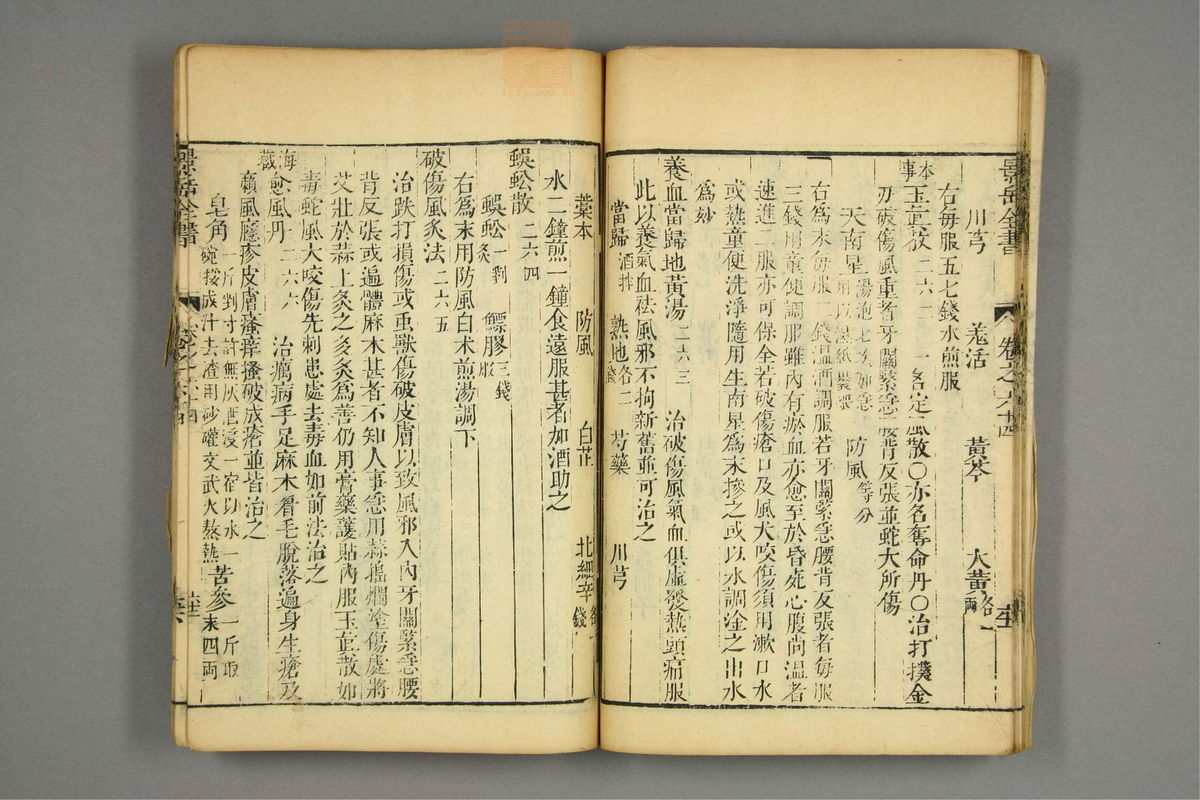 景岳全書 卷之六十四
川芎 羗活 黃芩 大黃各一兩
右每服五七錢水煎服
本事玉眞散二六二 一名定風散○亦名奪命丹○治打撲金
刃破傷風重者牙關緊急腰背反張並蛇犬所傷
天南星湯泡七次如急用以濕紙裹煨 防風等分
右爲末每服二錢溫酒調服若牙關緊急腰背反張者每服
三錢用童便調服雖內有瘀血亦愈至於昏死心腹尚溫者
速進二服亦可保全若破傷瘡口及風犬咬傷須用漱口水
或熱童便洗淨隨用生南星爲末摻之或以水調塗之出水
爲妙
養血當歸地黃湯二六三 治破傷風氣血俱虛發熱頭痛服
此以養氣血祛風邪不拘新舊並可治之
當歸酒拌 熟地各二錢 芍藥 川芎
藁本 防風 白芷 北細辛各一錢
水二鐘煎一鐘食遠服甚者加酒助之
蜈蚣散二六四
蜈蚣一對炙 鰾膠三錢
右爲末用防風白朮煎湯調下
破傷風炙法二六五
治跌打損傷或虫獸傷破皮膚以致風邪入內牙關緊急腰
背反張或遍體麻木甚者不知人事急用蒜搗爛塗傷處將
艾壯於蒜上灸之多灸爲善仍用膏藥護貼內服玉眞散如
毒蛇風犬咬傷先刺患處去毒血如前法治之
海藏愈風丹二六六 治癘病手足麻木眉毛脫落遍身生瘡及
癩風癮疹皮膚瘙痒搔破成瘡並皆治之
皂角一斤剉寸許無灰酒浸一宿以水一碗挼成汁去渣用砂罐文武火熬熱 苦參一斤取末四兩
景岳全書